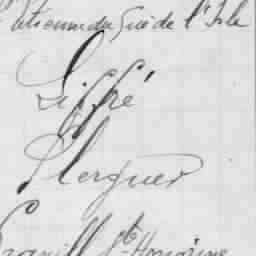 Etienne du Gué de l'Isle
Liffré
Plerguer
Granville Ste Honorine